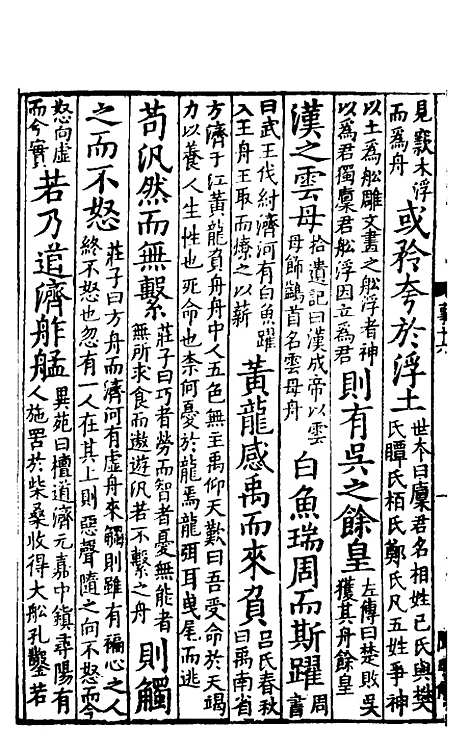 見窾木浮
而爲舟
或矜夸於浮土
世本曰廩君名相姓巳氏與樊
氏瞫氏栢氏鄭氏凡五姓爭神
以土爲舩雕文畫之舩浮者神
以爲君獨廩君舩浮因立爲君
則有吳之餘皇
左傳曰楚敗吳
獲其舟餘皇
漢之雲母
拾遺記曰漢成帝以雲
母飾鷁首名雲母舟
白魚瑞周而斯躍
周
書
曰武王伐紂濟河有白魚躍
入王舟王取而燎之以薪
黃龍感禹而來負
呂氏春秋
曰禹南省
方濟于江黃龍負舟舟中人五色無主禹仰天歎曰吾受命於天竭
力以養人生性也死命也柰何憂於龍焉龍弭耳曳尾而逃
苟汎然而無繫
莊子曰巧者勞而智者憂無能者
無所求食而遨遊汎若不繫之舟
則觸
之而不怒
莊子曰方舟而濟河有虛舟來觸則雖有褊心之人
終不怒也忽有一人在其上則惡聲隨之向不怒而今
怒向虛
而今實
若乃道濟舴艋
異苑曰檀道濟元嘉中鎮尋陽有
人施罟於柴桑收得大舩孔鑿若